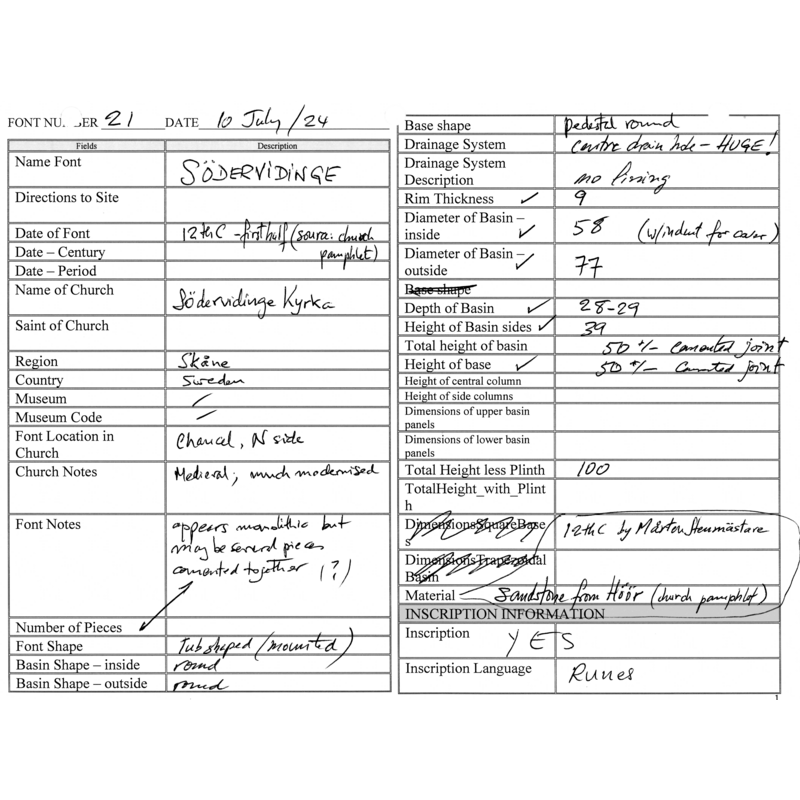 FONT NU. BER 21 DATE 10 July/24
Fields Description
Name Font SÖDERVIDINGE
Directions to Site
Date of Font 12thC - first half (source: church
Date – Century pamphlet)
Date – Period
Name of Church Södervidinge Kyrka
Saint of Church
Region Skåne
Country Sweden
Museum /
Museum Code /
Font Location in Chancel, N side
Church
Church Notes Medieval; much modernised
Font Notes appears monolithic but
may be several pieces
cemented together (?)
Number of Pieces
Font Shape Tub shaped (mounted)
Basin Shape – inside round
Basin Shape – outside round
Base shape pedestal round
Drainage System centre drain hole - HUGE!
Drainage System
Description no lining
Rim Thickness ✓ 9
Diameter of Basin –
inside ✓ 58 (w/indent for cover)
Diameter of Basin –
outside ✓ 77
Base shape
Depth of Basin ✓ 28-29
Height of Basin sides ✓ 39
Total height of basin 50 +/- cemented joint
Height of base ✓ 50 +/- cemented joint
Height of central column
Height of side columns
Dimensions of upper basin
panels
Dimensions of lower basin
panels
Total Height less Plinth 100
TotalHeight_with_Plint
h
DimensionsSquareBase
s 12thC by Mårten Stenmästare
DimensionsTrapezoidal
Basin
Material Sandstone from Höör (church pamphlet)
INSCRIPTION INFORMATION
Inscription YES
Inscription Language Runes
1